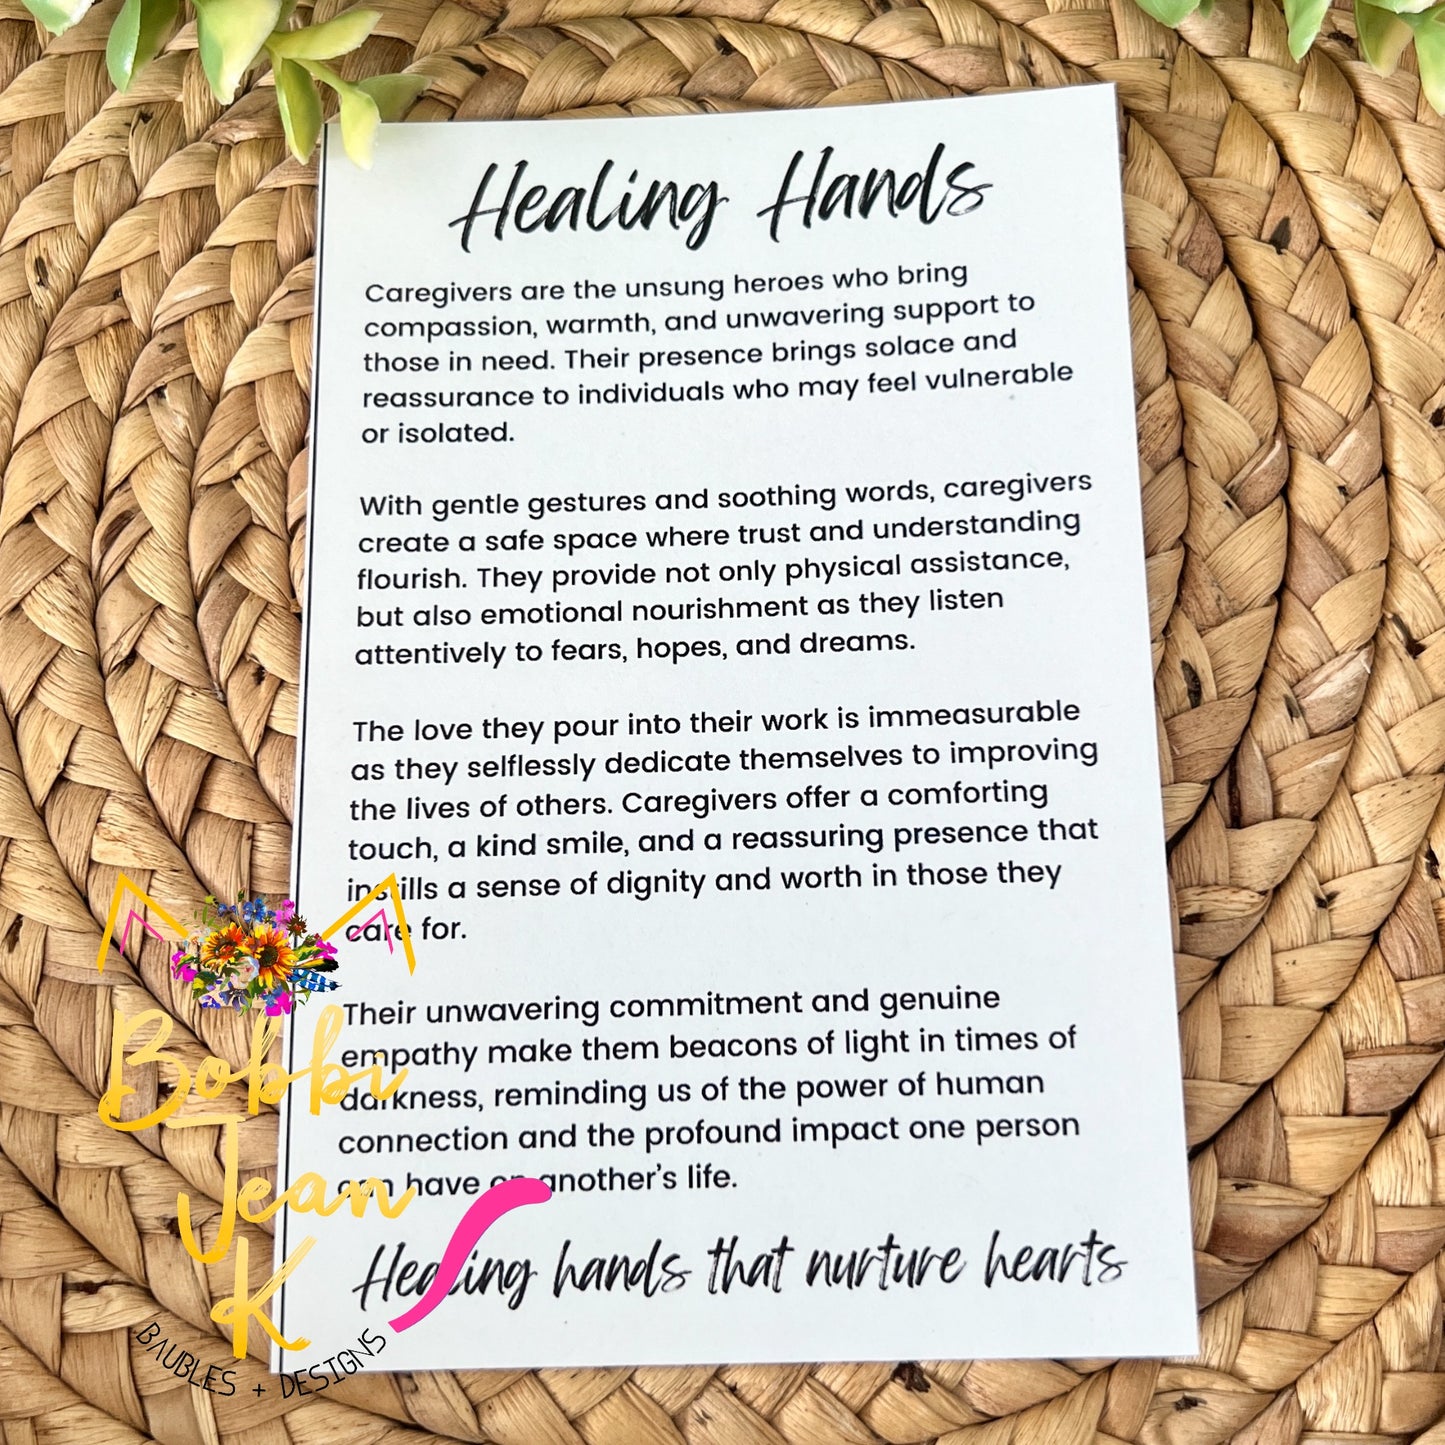 Healing Hands
Caregivers are the unsung heroes who bring
compassion, warmth, and unwavering support to
those in need. Their presence brings solace and
reassurance to individuals who may feel vulnerable
or isolated.
With gentle gestures and soothing words, caregivers
create a safe space where trust and understanding
flourish. They provide not only physical assistance,
but also emotional nourishment as they listen
attentively to fears, hopes, and dreams.
The love they pour into their work is immeasurable
as they selflessly dedicate themselves to improving
the lives of others. Caregivers offer a comforting
touch, a kind smile, and a reassuring presence that
instills a sense of dignity and worth in those they
care for.
Their unwavering commitment and genuine
empathy make them beacons of light in times of
darkness, reminding us of the power of human
connection and the profound impact one person
can have on another's life.
Healing hands that nurture hearts
Bobbi
Jean
K
BAUBLES + DESIGNS